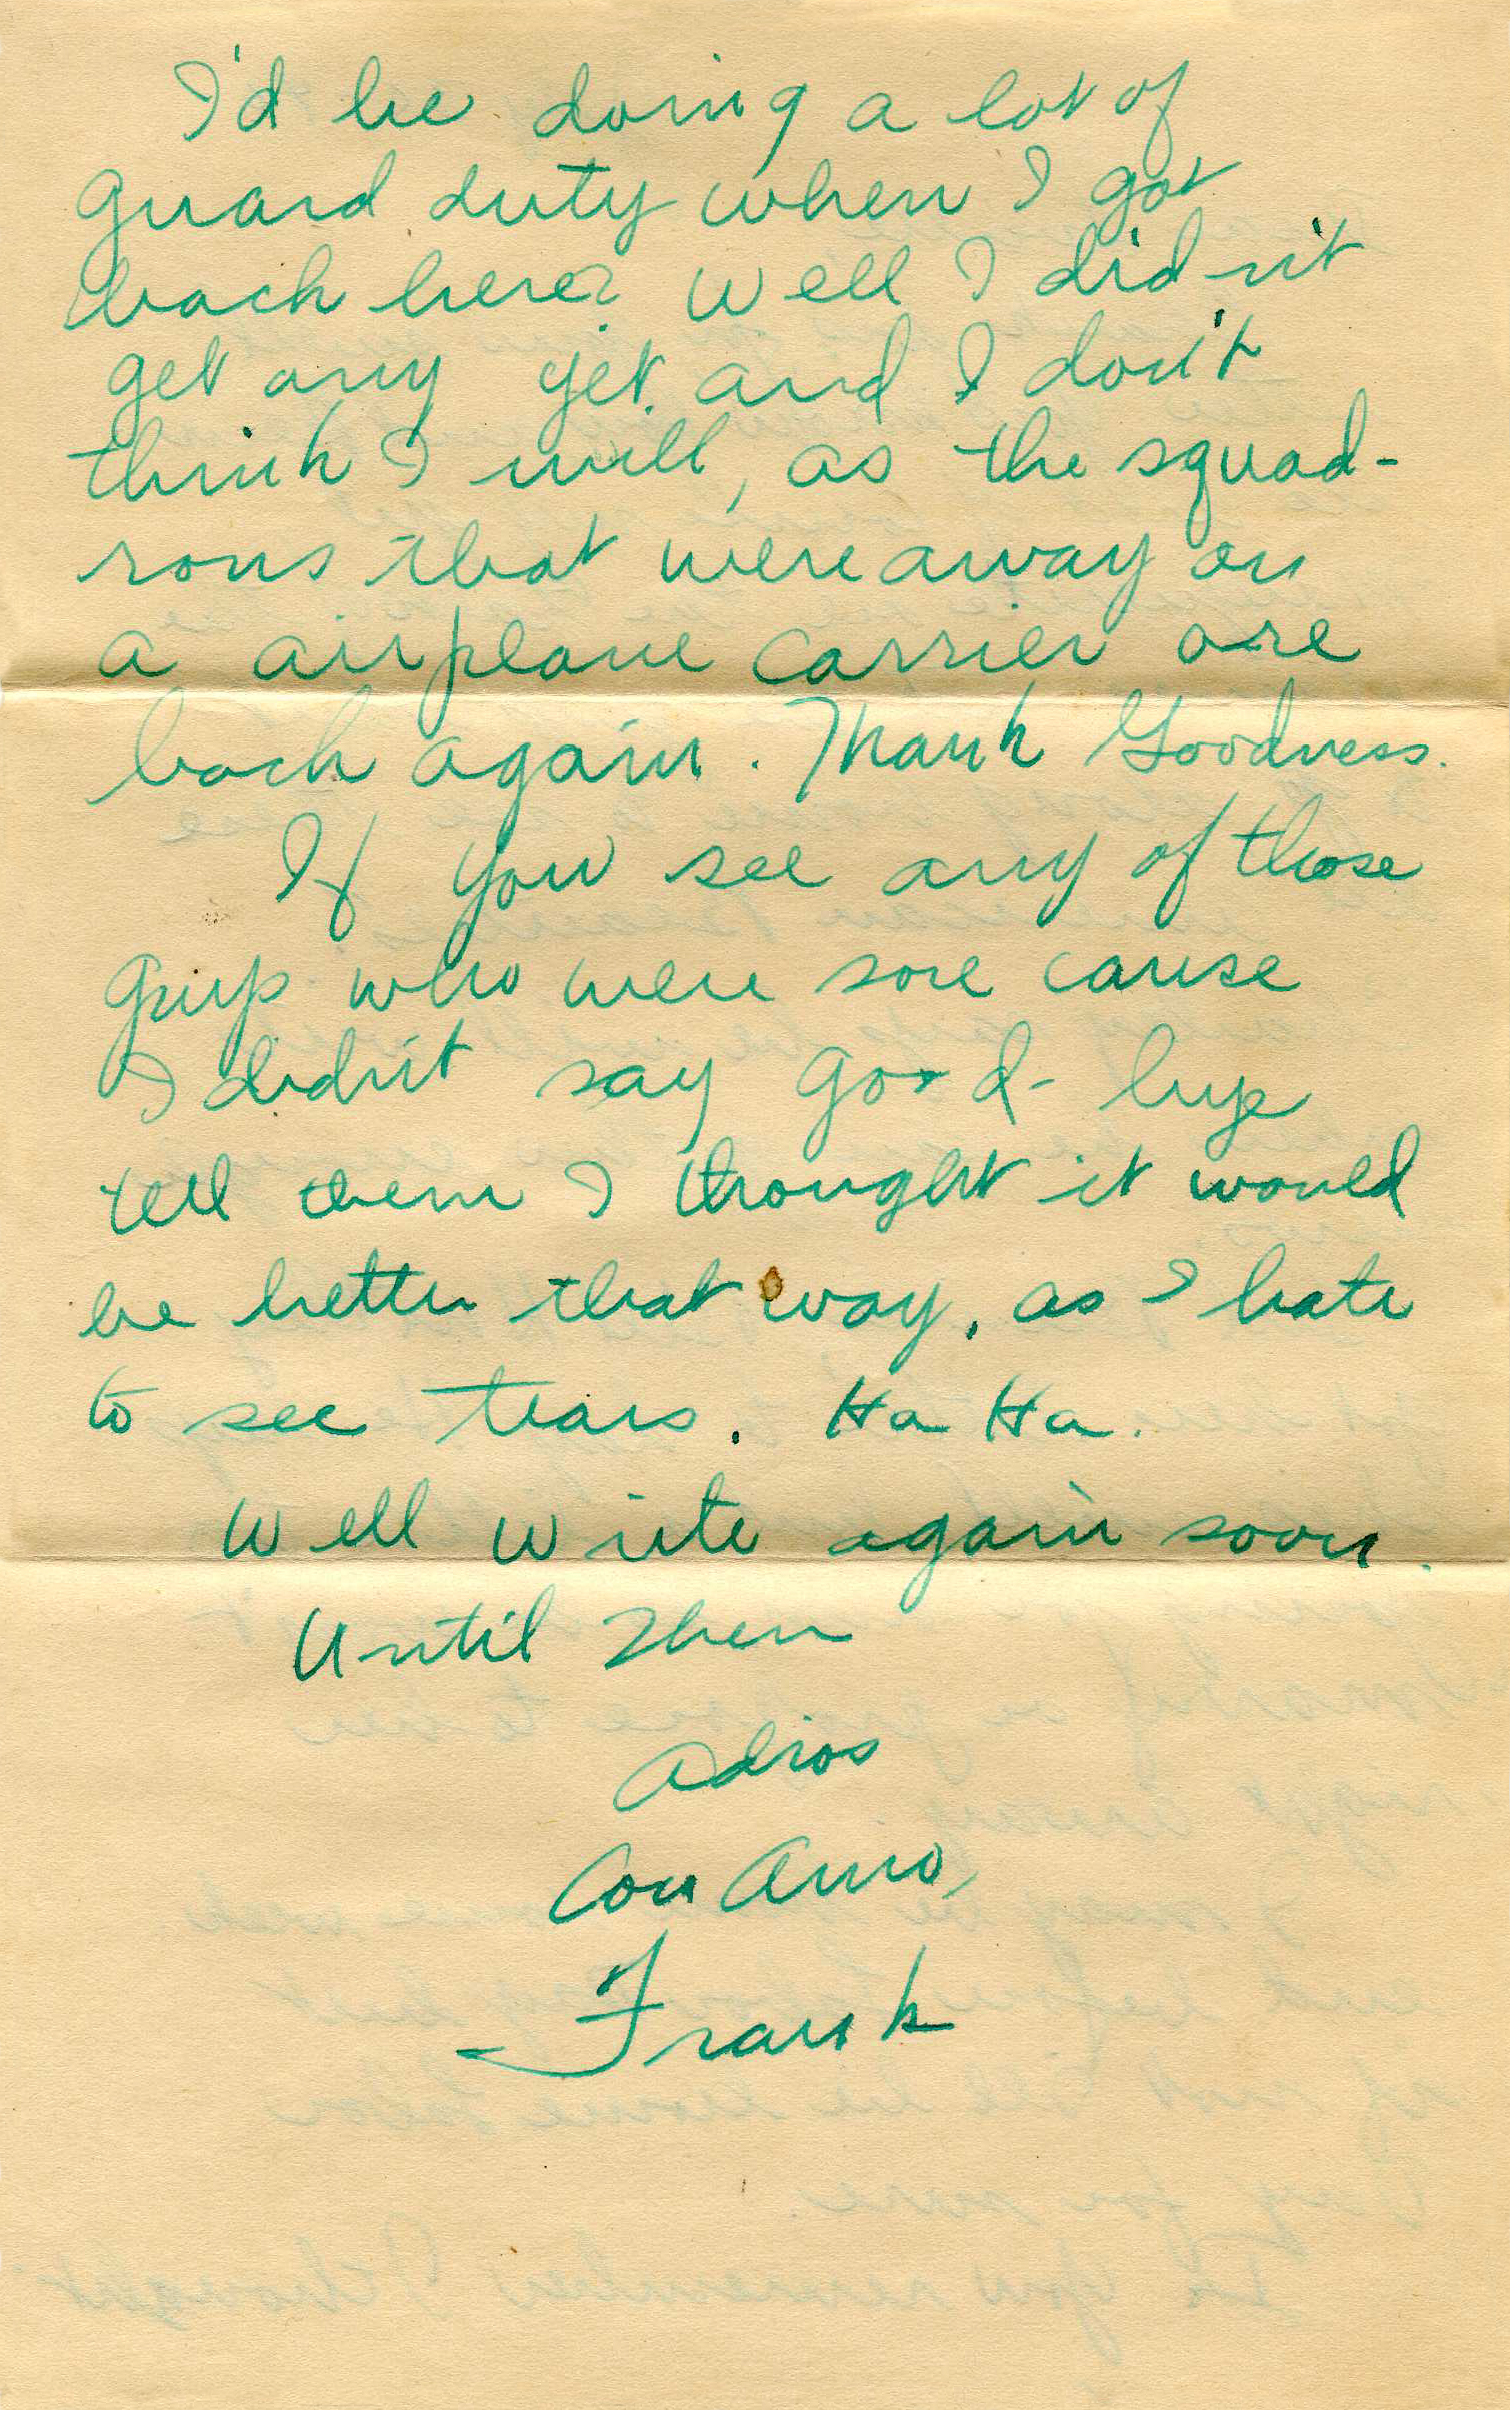 I'd be doing a lot of
guard duty when I got
back here? Well I didn't
get any yet. and I don't
think I will, as the squad-
rons that were away on
a airplane carrier are
back again. Thank Goodness.
If you see any of those
guys who were sore cause
I didn't say good-bye
tell them I thought it would
be better that way, as I hate
to see tears. Ha Ha.
Well write again soon.
Until then
Adios
Con Amo,
Frank